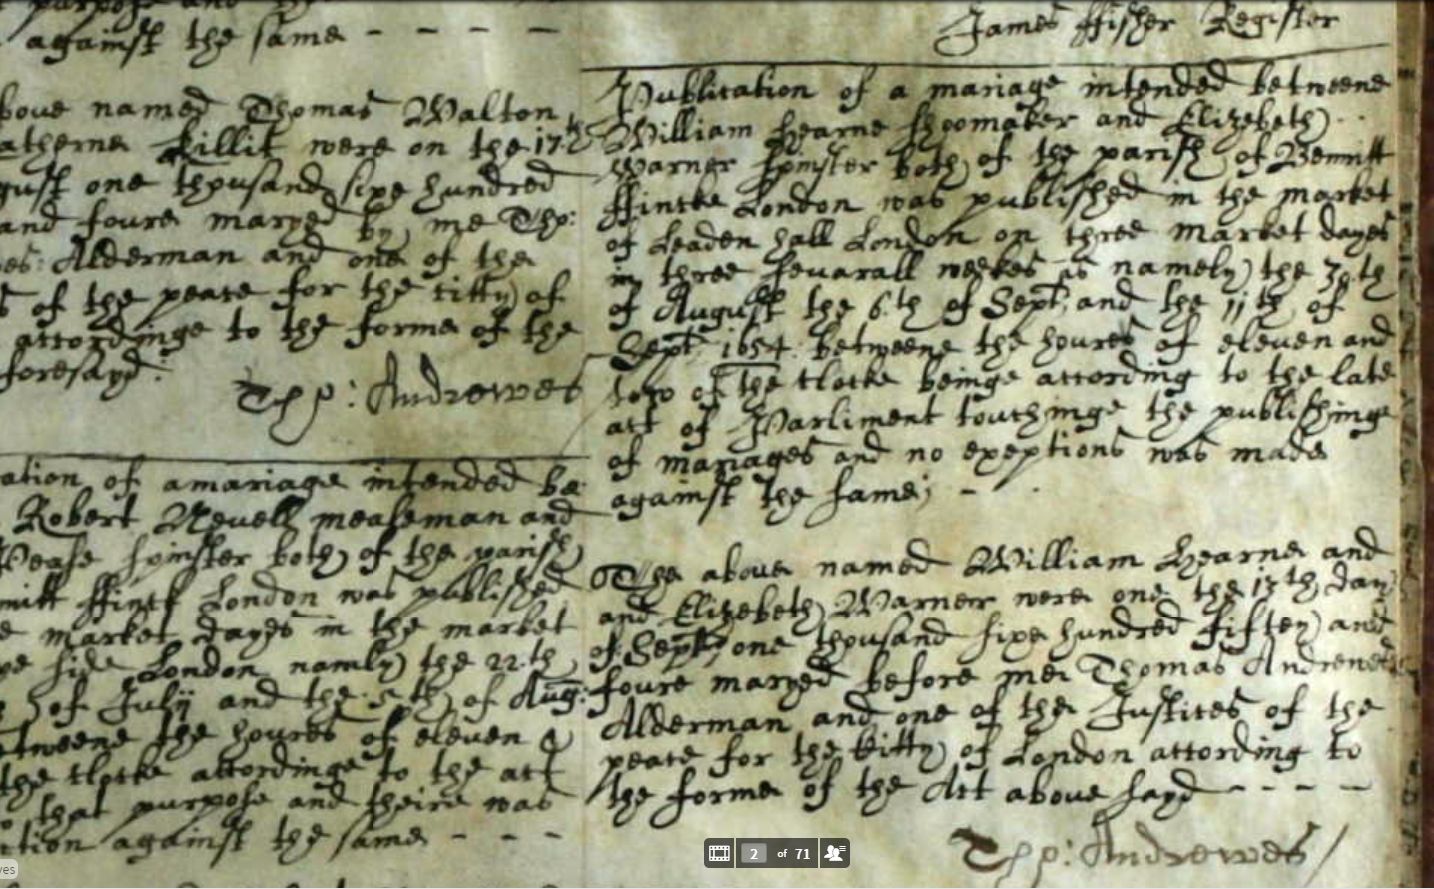 against the same - - - -
boue named Thomas Walton
atherne Killit were on the 17th
gust one thousand sixe hundred
and foure maryed by me Tho:
es: Alderman and one of the
s of the peace for the citty of
accordinge to the forme of the
foresayd.
Tho: Andrewes
ation of a mariage intended be
Robert Nevell measeman and
Pease spinster both of the parish
nitt ffinck London was published
e market dayes in the market
pe side London namly the 22th
of Julij and the 5th of Aug:
tweene the houres of eleven &
the clocke accordinge to the act
that purpose and theire was
ction against the same - - -
James ffisher Register
Publication of a mariage intended betweene
William Hearne shoomaker and Elizebeth
Warner spinster both of the parish of Bennitt
ffincke London was published in the market
of Leaden hall London on three market dayes
in three sevarall weekes as namely the 30th
of August the 6th of Sept: and the 11th of
Sept 1654: betweene the houres of eleven and
tow of the clocke beinge according to the late
act of Parliment touchinge the publishinge
of mariages and no exeptions was made
against the same; -
The above named William Hearne and
and Elizebeth Warner were one the 13th day
of Sept; one thousand sixe hundred fiftey and
foure maryed before me Thomas Andrewes
Alderman and one of the Justices of the
peace for the Citty of London according to
the forme of the Act above sayd - - - -
Tho: Andrewes
2 of 71
ves